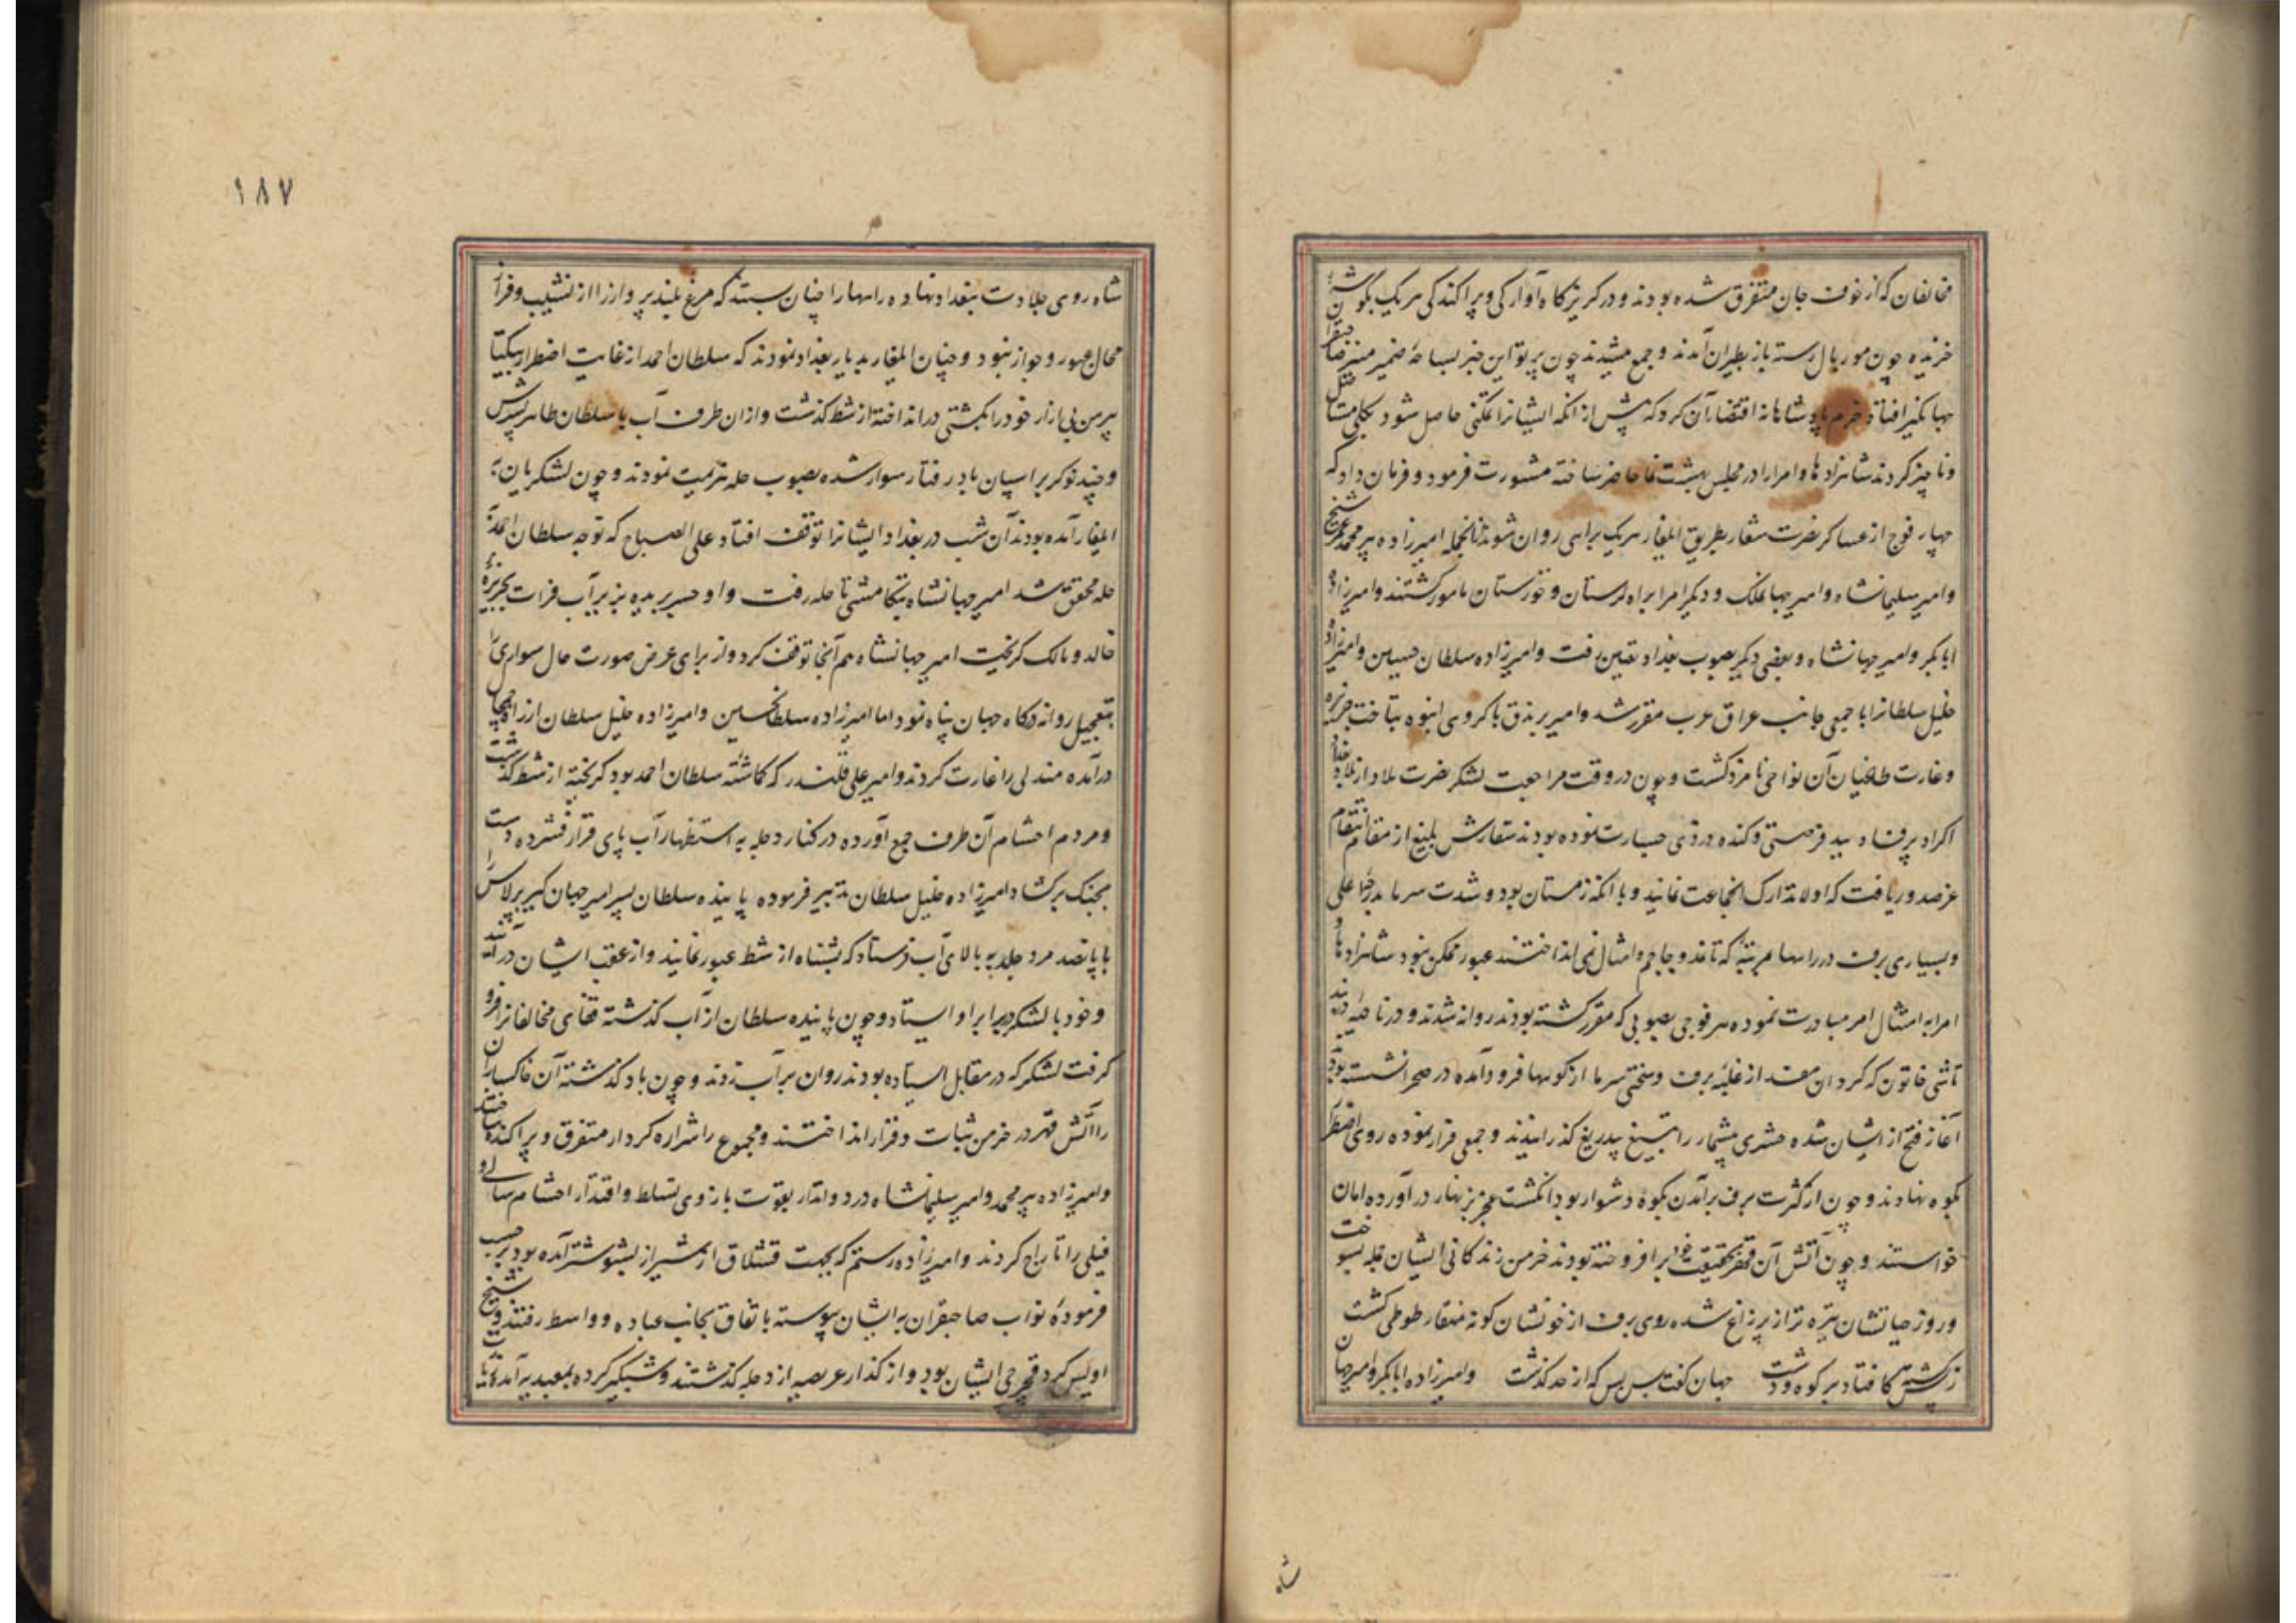 مخالفان که از خوف جان متفرق شده بودند و در کریزکاه آوارکی و پراکندکی هر یک بکوشهٔ
خزیده چون مور بال رسته باز بطیران آمدند و جمع میشدند چون پرتو این خبر بساحهٔ ضمیر منیر صاحبقران
جهانکیر افتاد حزم پادشاهانه اقتضاء آن کرد که پیش از انکه ایشانرا تمکنی حاصل شود بکلی مستاصل
و ناچیز کردند شاهزادها و امرا را در مجلس بهشت آسا حاضر ساخته مشورت فرمود و فرمان داد که
چهار فوج از عساکر نصرت شعار بطریق ایلغار هر یک براهی روان شوند ازانجمله امیرزاده پیر محمد عمر شیخ
و امیر سلیمانشاه و امیر جهانملک و دیکر امرا براه لرستان و خوزستان مامور کشتند و امیرزاده
ابابکر و امیر جهانشاه و بعضی دیکر بصوب بغداد تعیین رفت و امیرزاده سلطان حسین و امیرزاده
خلیل سلطانرا با جمعی جانب عراق عرب مقرر شد و امیر برندق با کروهی انبوه بتاخت جزیره
و غارت طاغیان آن نواحی نامزد کشت و چون در وقت مراجعت لشکر نصرت ملاد از بغداد
اکراد پر فساد بید فرصتی و کنده دزدی جسارت نموده بودند سفارش بلیغ از مقام انتقام
عز صدور یافت که اولا تدارک انجماعت نمایند و با انکه زمستان بود و شدت سرما بدرجهٔ اعلی
و بسیاری برف در راهها بمرتبهٔ که تا نمد و جاجم و امثال نمی انداختند عبور ممکن نبود شاهزادها و
امرا به امتثال امر مبادرت نموده هر فوجی بصوبی که مقرر کشته بودند روانه شدند و در ناحیهٔ دربند
تاشی خاتون که کردان مفسد از غلبهٔ برف و سختی سرما از کوهها فرود آمده در صحرا نشسته بودند
آغاز فتح از ایشان شده حشری بیشمار را بتیغ بیدریغ کذرانیدند و جمعی فرار نموده روی اضطرار
بکوه نهادند و چون از کثرت برف برآمدن بکوه دشوار بود انکشت عجز بزنهار در آورده امان
خواستند و چون آتش آن قهر بحقیقت خود برافروخته بودند خرمن زندکانی ایشان بجمله بسوخت
و روز حیاتشان تیره تر از پر زاغ شده روی برف از خونشان کونه منقار طوطی کشت
ز بس کشته کافتاد بر کوه و دشت جهان کفت بس بس که از حد کذشت و امیرزاده ابابکر و امیر جهان
شاه
۱۸۷
شاه روی جلادت ببغداد نهاده راهها را چنان بستند که مرغ بلند پرواز را از نشیب و فراز
مجال عبور و جواز نبود و چنان ایلغار بدیار بغداد نمودند که سلطان احمد از غایت اضطرار بیکتا
پیرهن بی ازار خود را بکشتی در انداخته از شط کذشت و ازان طرف آب با سلطان طاهر پسرش
و چند نوکر بر اسپان باد رفتار سوار شده بصوب حله هزیمت نمودند و چون لشکریان به
ایلغار آمده بودند آن شب در بغداد ایشانرا توقف افتاد علی الصباح که توجه سلطان احمد به
حله محقق شد امیر جهانشاه بتکامشی تا حله رفت و او جسر بریده بزیر آب فرات بجزیرهٔ
خالد و مالک کریخت امیر جهانشاه هم آنجا توقف کرد و از برای عرض صورت حال سواری را
بتعجیل روانه درکاه جهان پناه نمود اما امیرزاده سلطانحسین و امیرزاده خلیل سلطان از راه چمچال
در آمده مندلی را غارت کردند و امیر علی قلندر که کماشتهٔ سلطان احمد بود کریخته از شط کذشت
و مردم احشام آن طرف جمع آورده در کنار دجله به استظهار آب پای قرار فشرده دست
بجنک برکشاد امیرزاده خلیل سلطان تدبیر فرموده پاینده سلطان پسر امیر جهان کیر برلاس را
با پانصد مرد جلد به بالای آب فرستاد که بشناه از شط عبور نمایند و از عقب ایشان در آیند
و خود با لشکر در برابر او ایستاد و چون پاینده سلطان از آب کذشته قفای مخالفانرا فرو
کرفت لشکر که در مقابل ایستاده بودند روان بر آب زدند و چون باد کذشته آن خاکساران
را آتش قهر در خرمن ثبات و قرار انداختند و مجموع را شراره کردار متفرق و پراکنده ساختند
و امیرزاده پیر محمد و امیر سلیمانشاه در دوانداز بقوت بازوی تسلط و اقتدار احشام ساکی و
فیلی را تاراج کردند و امیرزاده رستم که بجهت قشلاق از شیراز بشوشتر آمده بود بر حسب
فرمودهٔ نواب صاحبقران به ایشان پیوسته باتفاق بجانب عباده و واسط رفتند و شیخ
اویس کرد قجرجی ایشان بود و از کذار عریصیه از دجله کذشتند و شبکیر کرده بمعبدیه آمدند تا